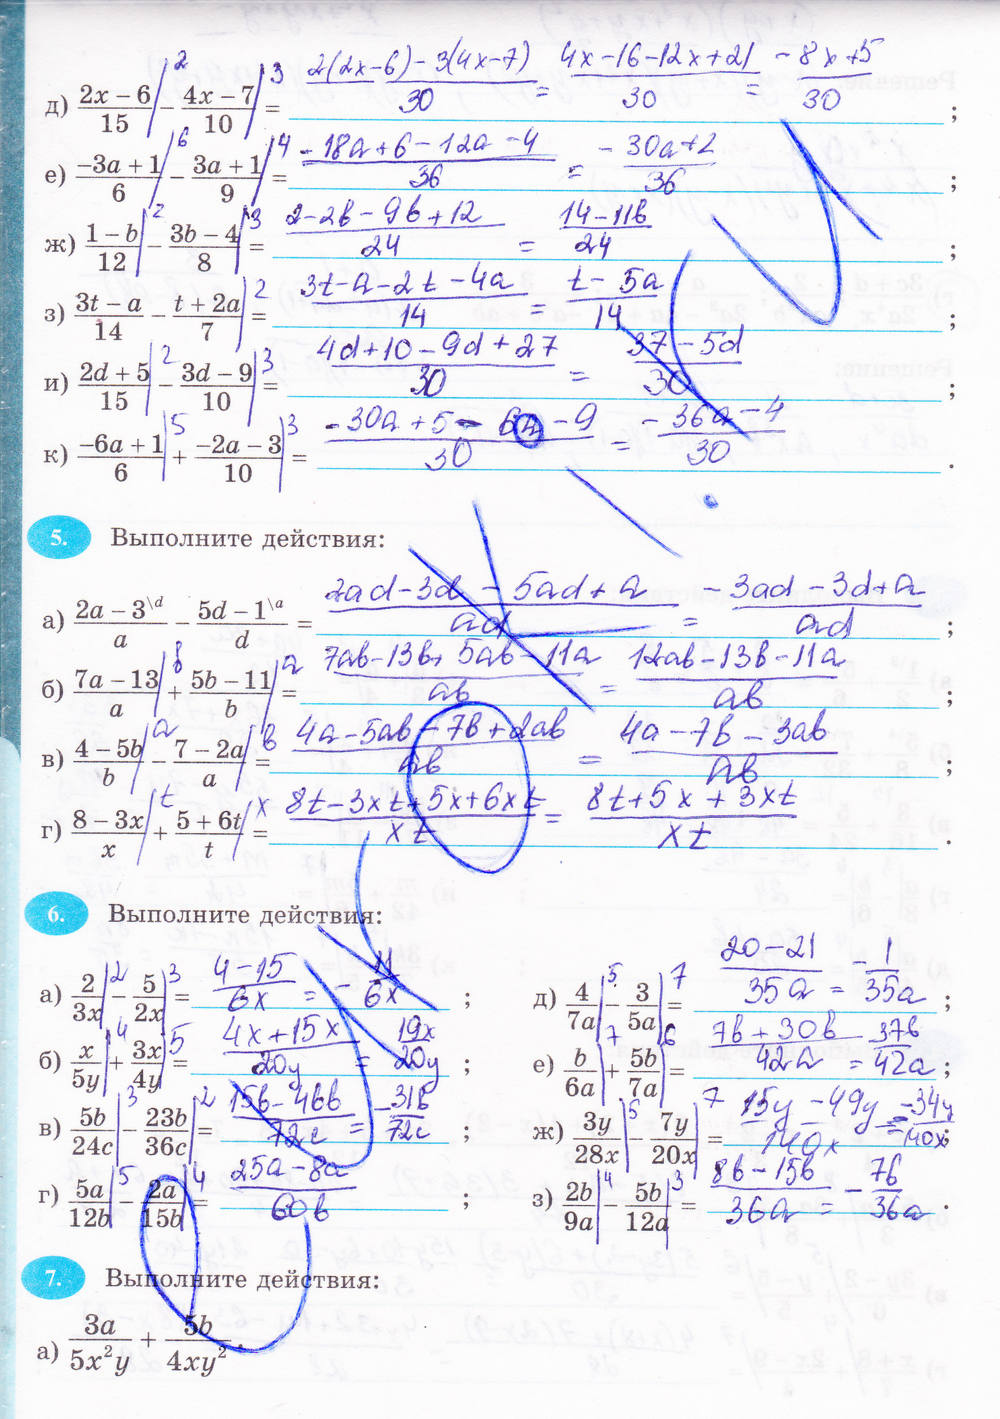 д) (2x − 6)/15 |2 − (4x − 7)/10 |3 = (2(2x-6) - 3(4x-7))/30 = (4x-16-12x+21)/30 = (-8x+5)/30 ;
е) (−3a + 1)/6 |6 − (3a + 1)/9 |4 = (-18a+6-12a-4)/36 = (-30a+2)/36 ;
ж) (1 − b)/12 |2 − (3b − 4)/8 |3 = (2-2b-9b+12)/24 = (14-11b)/24 ;
з) (3t − a)/14 − (t + 2a)/7 |2 = (3t-a-2t-4a)/14 = (t-5a)/14 ;
и) (2d + 5)/15 |2 − (3d − 9)/10 |3 = (4d+10-9d+27)/30 = (37-5d)/30 ;
к) (−6a + 1)/6 |5 + (−2a − 3)/10 |3 = (-30a+5-6a-9)/30 = (-36a-4)/30 .
5. Выполните действия:
а) (2a − 3\d)/a − (5d − 1\a)/d = (2ad-3d-5ad+a)/ad = (-3ad-3d+a)/ad ;
б) (7a − 13)/a |b + (5b − 11)/b |a = (7ab-13b+5ab-11a)/ab = (12ab-13b-11a)/ab ;
в) (4 − 5b)/b |a − (7 − 2a)/a |b = (4a-5ab-7b+2ab)/ab = (4a-7b-3ab)/ab ;
г) (8 − 3x)/x |t + (5 + 6t)/t |x = (8t-3xt+5x+6xt)/xt = (8t+5x+3xt)/xt .
6. Выполните действия:
а) 2/3x |2 − 5/2x |3 = (4-15)/6x = -11/6x ;
б) x/5y |4 + 3x/4y |5 = (4x+15x)/20y = 19x/20y ;
в) 5b/24c |3 − 23b/36c |2 = (15b-46b)/72c = -31b/72c ;
г) 5a/12b |5 − 2a/15b |4 = (25a-8a)/60b ;
д) 4/7a |5 − 3/5a |7 = (20-21)/35a = -1/35a ;
е) b/6a |7 + 5b/7a |6 = (7b+30b)/42a = 37b/42a ;
ж) 3y/28x |5 − 7y/20x |7 = (15y-49y)/140x = -34y/140x ;
з) 2b/9a |4 − 5b/12a |3 = (8b-15b)/36a = -7b/36a .
7. Выполните действия:
а) 3a/5x²y + 5b/4xy² .